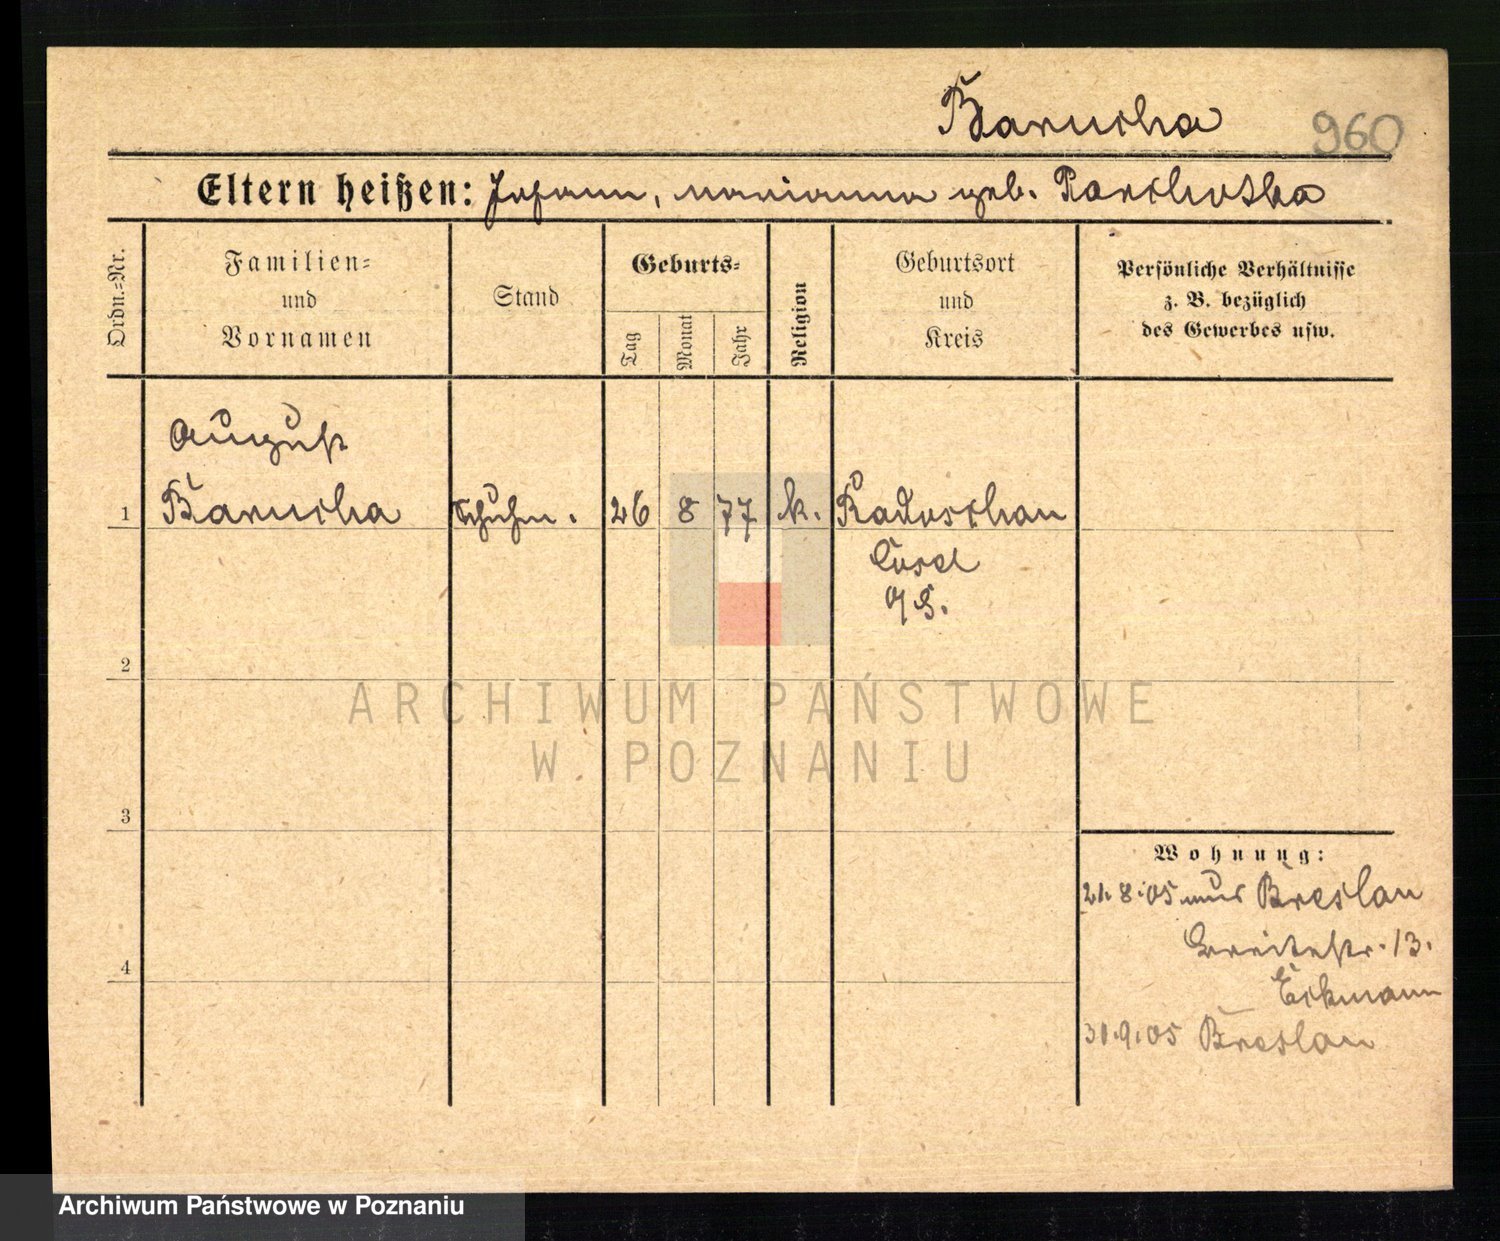 Barucha 960
Eltern heißen: Johann, Marianna geb. Parchotka
Ordn.-Nr.
Familien-
und
Vornamen
Stand
Geburts-
Tag
Monat
Jahr
Religion
Geburtsort
und
Kreis
Persönliche Verhältnisse
z. B. bezüglich
des Gewerbes usw.
August
1 Barucha Schuhm. 26 8 77 k. Radoschau
Cosel
O/S.
2
3
4
Wohnung:
21.8.05 aus Breslau
Breitestr. 13.
Eckmann
30.9.05 Breslau
ARCHIWUM PAŃSTWOWE
W POZNANIU
Archiwum Państwowe w Poznaniu